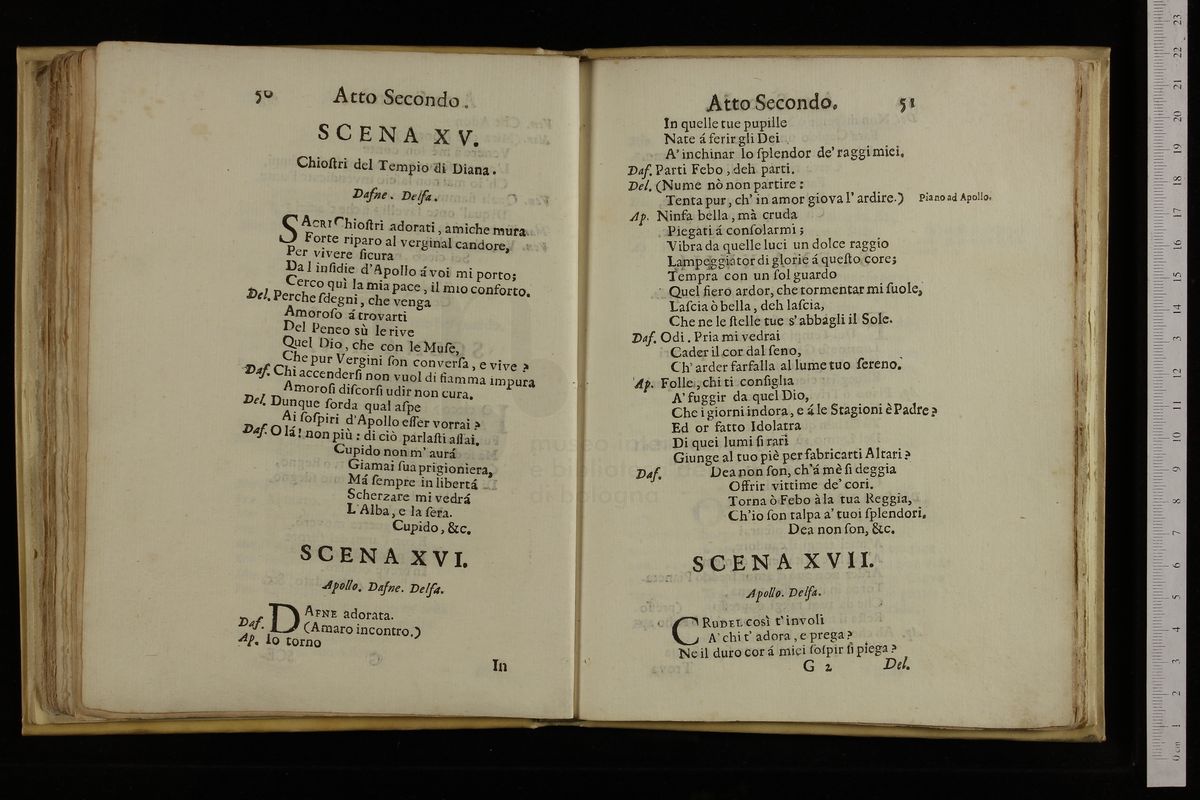 50 Atto Secondo.
SCENA XV.
Chioſtri del Tempio di Diana.
Dafne. Delfa.
SACRI Chioſtri adorati, amiche mura
Forte riparo al verginal candore,
Per vivere ſicura
Dal inſidie d'Apollo á voi mi porto;
Cerco quì la mia pace, il mio conforto.
Del. Perche ſdegni, che venga
Amoroſo á trovarti
Del Peneo sù le rive
Quel Dio, che con le Muſe,
Che pur Vergini ſon converſa, e vive?
Daf. Chi accenderſi non vuol di fiamma impura
Amoroſi diſcorſi udir non cura.
Del. Dunque ſorda qual aſpe
Ai ſoſpiri d'Apollo eſſer vorrai?
Daf. O lá! non più: di ciò parlaſti aſſai.
Cupido non m'aurá
Giamai ſua prigioniera,
Má ſempre in libertá
Scherzare mi vedrá
L'Alba, e la ſera.
Cupido, &c.
SCENA XVI.
Apollo. Dafne. Delfa.
DAFNE adorata.
Daf. (Amaro incontro.)
Ap. Io torno
In
Atto Secondo. 51
In quelle tue pupille
Nate á ferir gli Dei
A' inchinar lo ſplendor de' raggi miei.
Daf. Parti Febo, deh parti.
Del. (Nume nò non partire:
Tenta pur, ch' in amor giova l' ardire.) Piano ad Apollo.
Ap. Ninfa bella, mà cruda
Piegati á conſolarmi;
Vibra da quelle luci un dolce raggio
Lampeggiator di glorie á queſto core;
Tempra con un ſol guardo
Quel fiero ardor, che tormentar mi ſuole,
Laſcia ò bella, deh laſcia,
Che ne le ſtelle tue s'abbagli il Sole.
Daf. Odi. Pria mi vedrai
Cader il cor dal ſeno,
Ch' arder farfalla al lume tuo ſereno.
Ap. Folle, chi ti conſiglia
A' fuggir da quel Dio,
Che i giorni indora, e á le Stagioni è Padre?
Ed or fatto Idolatra
Di quei lumi ſi rari
Giunge al tuo piè per fabricarti Altari?
Daf. Dea non ſon, ch'á mè ſi deggia
Offrir vittime de' cori.
Torna ò Febo à la tua Reggia,
Ch'io ſon talpa a' tuoi ſplendori.
Dea non ſon, &c.
SCENA XVII.
Apollo. Delfa.
CRUDEL così t'involi
A' chi t' adora, e prega?
Ne il duro cor á miei ſoſpir ſi piega?
G 2 Del.